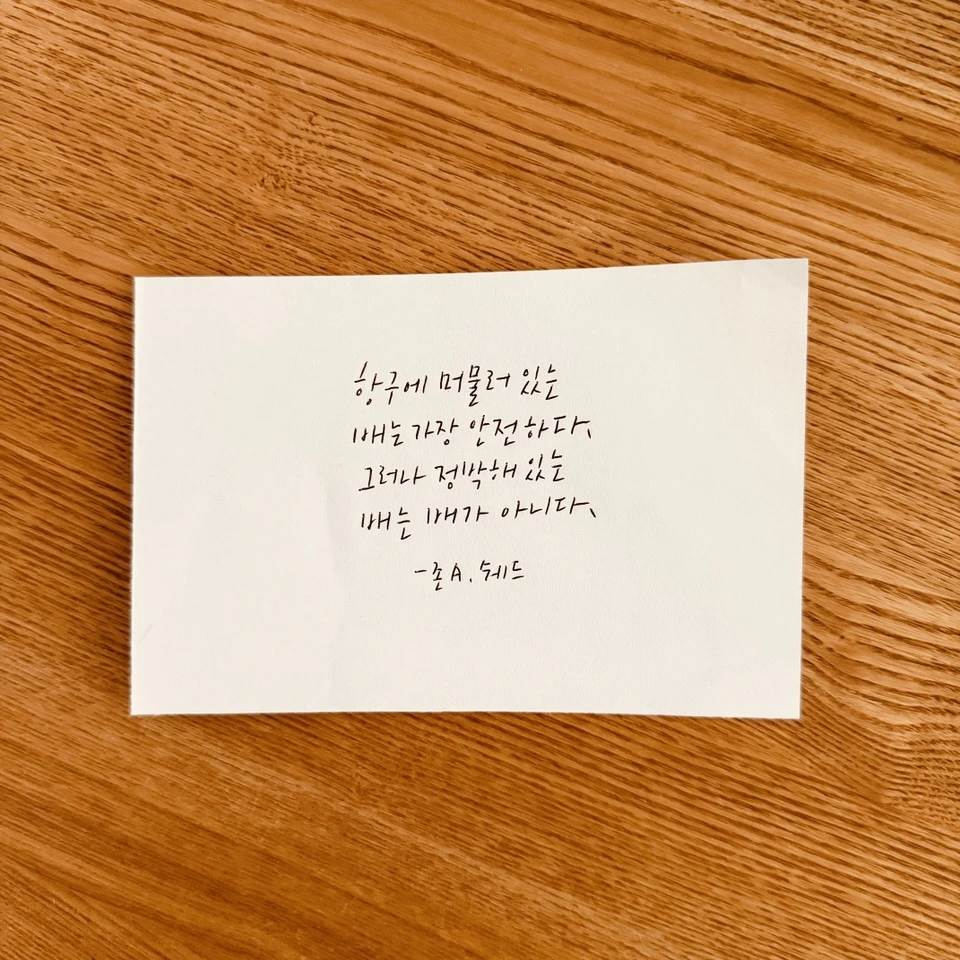 항구에 머물러 있는
배는 가장 안전하다.
그러나 정박해 있는
배는 배가 아니다.
- 존 A. 쉐드